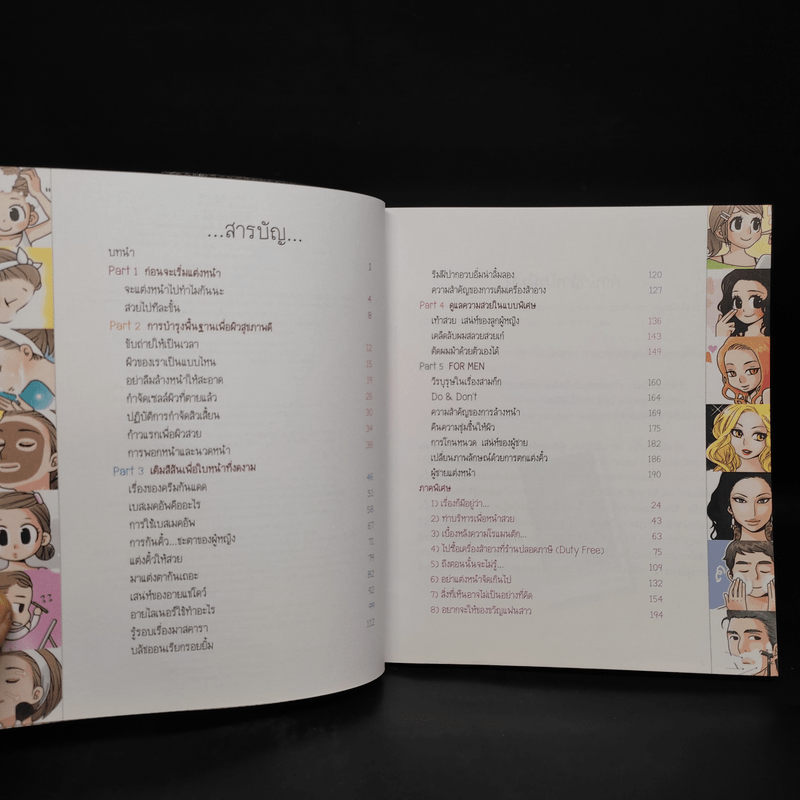 ...สารบัญ...
บทนำ
Part 1 ก่อนจะเริ่มแต่งหน้า 1
จะแต่งหน้าไปทำไมกันนะ 4
สวยไปทีละขั้น 8
Part 2 การบำรุงพื้นฐานเพื่อผิวสุขภาพดี
ขับถ่ายให้เป็นเวลา 12
ผิวของเราเป็นแบบไหน 15
อย่าลืมล้างหน้าให้สะอาด 19
กำจัดเซลล์ผิวที่ตายแล้ว 26
ปฏิบัติการกำจัดสิวเสี้ยน 30
ก้าวแรกเพื่อผิวสวย 34
การพอกหน้าและนวดหน้า 38
Part 3 เติมสีสันเพื่อใบหน้าที่งดงาม
เรื่องของครีมกันแดด 46
เบสเมคอัพคืออะไร 51
การใช้เบสเมคอัพ 58
การกันคิ้ว...ชะตาของผู้หญิง 67
แต่งคิ้วให้สวย 71
มาแต่งตากันเถอะ 79
เสน่ห์ของอายแชโดว์ 82
อายไลเนอร์ใช้ทำอะไร 92
รู้รอบเรื่องมาสคารา 99
บลัชออนเรียกรอยยิ้ม 112
ริมฝีปากอวบอิ่มน่าลิ้มลอง 120
ความสำคัญของการเติมเครื่องสำอาง 127
Part 4 ดูแลความสวยในแบบพิเศษ
เท้าสวย เสน่ห์ของลูกผู้หญิง 136
เคล็ดลับผมสลวยสวยเก๋ 143
ตัดผมม้าด้วยตัวเองได้ 149
Part 5 FOR MEN
วีรบุรุษในเรื่องสามก๊ก 160
Do & Don't 164
ความสำคัญของการล้างหน้า 169
คืนความชุ่มชื้นให้ผิว 175
การโกนหนวด เสน่ห์ของผู้ชาย 182
เปลี่ยนภาพลักษณ์ด้วยการตกแต่งคิ้ว 186
ผู้ชายแต่งหน้า 190
ภาคพิเศษ
1) เรื่องก็มีอยู่ว่า... 24
2) ท่าบริหารเพื่อหน้าสวย 43
3) เบื้องหลังความโรแมนติก... 63
4) ไปซื้อเครื่องสำอางที่ร้านปลอดภาษี (Duty Free) 75
5) ถึงตอนนั้นจะไม่รู้... 109
6) อย่าแต่งหน้าจัดเกินไป 132
7) สิ่งที่เห็นอาจไม่เป็นอย่างที่คิด 154
8) อยากจะให้ของขวัญแฟนสาว 194